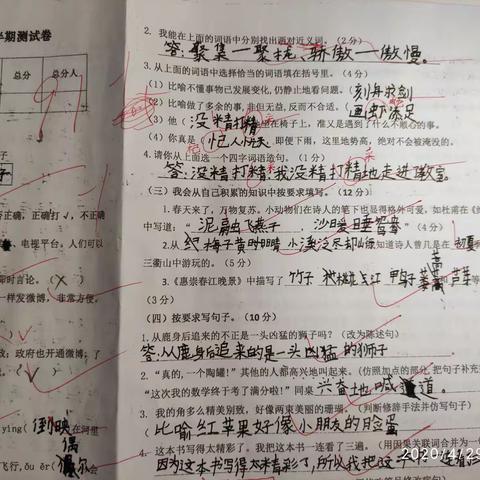 半期测试卷
总分
总分人
91
2. 我能在上面的词语中分别找出两对近义词。(2分)
答:聚集—聚拢、骄傲—傲慢。
3.从上面的词语中选择恰当的词语填在括号里。(4分)
(1)比喻不懂事物已发展变化,仍静止地看问题。(刻舟求剑
(2)比喻做了多余的事,非但无益,反而不合适。(画虾添足
(3)他(没精打精 在椅子上,准又是遇到了什么不顺心的事。
(4)你真是(忆人忧天 即便下雨,这里地势高,绝对不会被淹没的。
4.请你从上面选一个四字词语造句。(1分)
答:没精打精:我没精打精地走进了教室。
(三)我会从自己积累的知识中按要求填写。(12分)
1.春天来了,万物复苏。小动物们在诗人的笔下也是得格外可爱,如杜甫在《绝
中写道:“泥融飞燕子 沙暖睡鸳鸯
2.从 梅子黄时日晴 小溪泛尽却山 知道诗人曾几是在 初夏
三衢山中游玩的。(5分)
3.《惠崇春江晚景》中描写了 竹子 桃花 江 鸭子 蒌蒿 芦芽 等
(3分)
(四)按要求写句子。(10分)
1.从鹿身后追来的不正是一头凶猛的狮子吗?(改为陈述句)
答:从鹿身后追来的是一头凶猛的狮子
2.“真的,一个陶罐!”其他的人都高兴地叫起来。(仿照加点的部分,把句子补充
“这次我的数学终于考了满分啦!”同桌 兴奋地喊 道。
3. 我的角多么精美别致,好像两束美丽的珊瑚。(判断修辞手法并仿写句子)
(比喻红苹果好像小朋友的脸蛋
4. 这本书写得太精彩了。我把这本书一连看了三遍。(用因果关联词合并为一
因为这本书写得太精彩了,所以我把这
否正确,正确打√,不正确
电视平台。人们可以
即时言论。(X)
一样发微博,非常方便。
政府也开通微博,了
ying(倒映 在河里
飞行,ǒu ěr(偶尔 会
2020/4/29